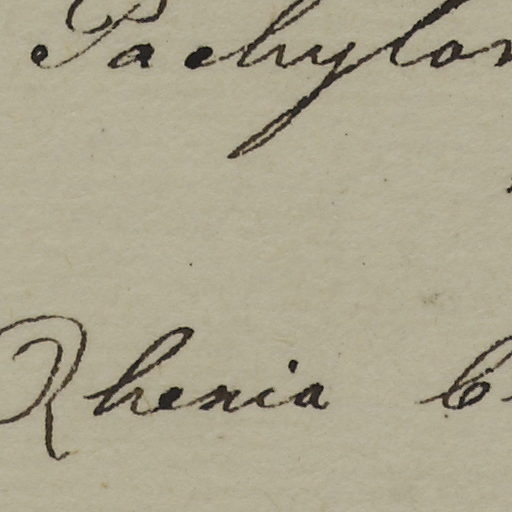 Pachylom
Rhenia b